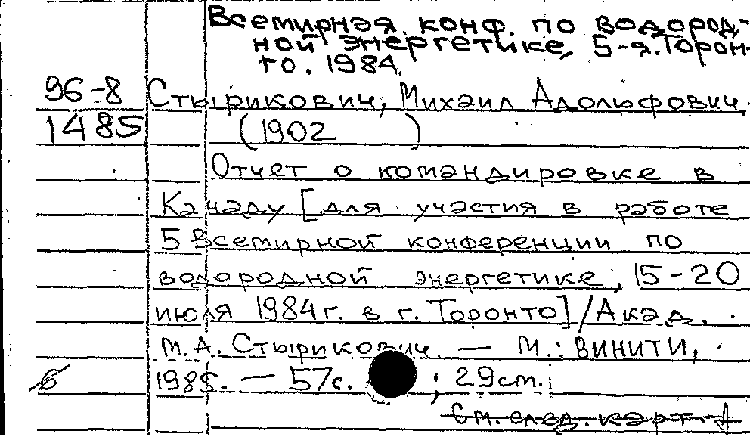 Всемирная конф. по водород-
ной энергетике, 5-я. Торон-
то. 1984.
96-8
1485
Стырикович, Михаил Адольфович,
(1902 )
Отчет о командировке в
Канаду [для участия в работе
5 Всемирной конференции по
водородной энергетике, 15-20
июля 1984г. в г. Торонто] / Акад.
М.А. Стырикович. — М.: ВИНИТИ,
1985. — 57с. ; 29см.
См. след. карт.